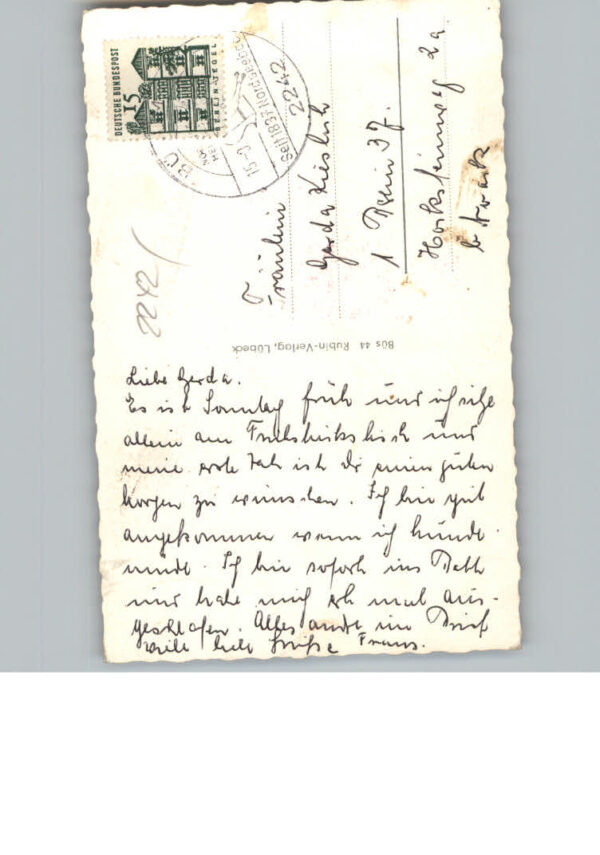 DEUTSCHE BUNDESPOST
15
BERLIN-TEGEL
BÜ
15.-9
2242
Seit 1837 Nordseebad
Fräulein
Gerda
1 Berlin 37.
2a
2242
Büs 44 Rubin-Verlag, Lübeck
Liebe Gerda.
Es ist Sonntag früh und ich sitze
allein am Frühstückstisch und
meine erste Tat ist Dir einen guten
Morgen zu wünschen. Ich bin gut
angekommen wenn ich hunde
müde. Ich bin sofort ins Bett
und habe mich erst mal aus-
geschlafen. Alles andere im Brief
viele liebe Grüße Franz.